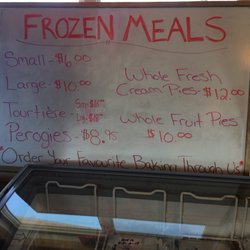 FROZEN MEALS
Small - $6.00
Large - $10.00
Tourtière Sm-
Lg-
Perogies - $8.95
Whole Fresh
Cream Pies - $12.00
Whole Fruit Pies
$10.00
"Order Your Favourite Baking Through Us"